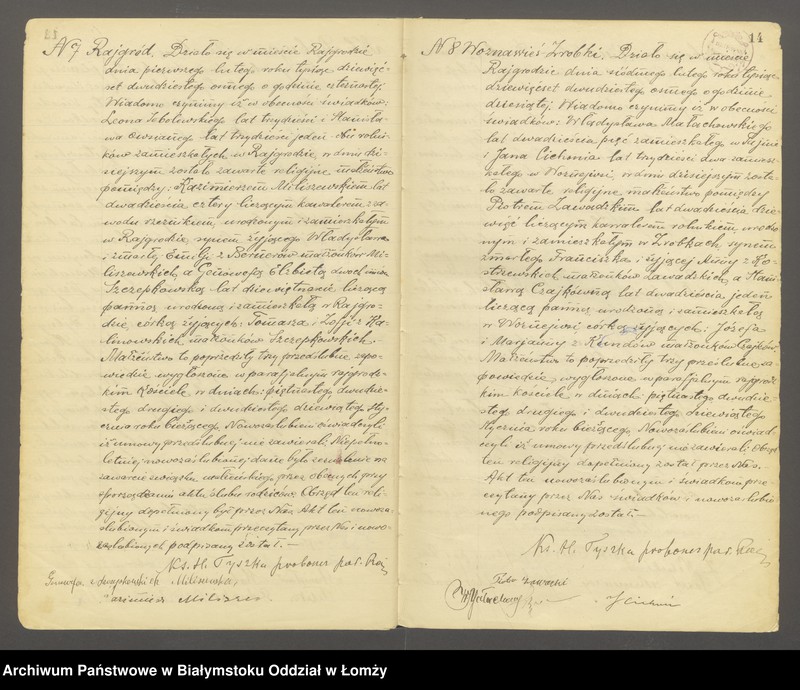 14
N 7 Rajgród. Działo się w mieście Rajgrodzie
dnia pierwszego lutego roku tysiąc dziewięć-
set dwudziestego ósmego o godzinie czternastej.
Wiadomo czynimy iż w obecności świadków:
Leona Sobolewskiego lat trzydzieści i Stanisła-
wa lat trzydzieści jeden rolni-
ków zamieszkałych w Rajgrodzie, w dniu dzi-
siejszym zostało zawarte religijne małżeństwo
pomiędzy: Kazimierzem Miliszewskim lat
dwadzieścia cztery liczącym kawalerem z za-
wodu urodzonym i zamieszkałym
w Rajgrodzie, synem żyjącego Władysława
i zmarłej Emilji z małżonków Mi-
liszewskich, a Genowefą Elżbietą dwóch imion
Szczepkowską lat dziewiętnaście liczącą
panną urodzoną i zamieszkałą w Rajgro-
dzie, córką żyjących: Tomasza i Zofji z Ka-
linowskich małżonków Szczepkowskich.
Małżeństwo to poprzedziły trzy przedślubne zapo-
wiedzie wygłoszone w parafjalnym rajgrodz-
kim Kościele w dniach: piętnastego, dwudzie-
stego drugiego i dwudziestego dziewiątego sty-
cznia roku bieżącego. Nowozaślubieni oświadczyli
iż umowy przedślubnej nie zawierali. Niepełno-
letniej nowozaślubionej dane było zezwolenie na
zawarcie związku małżeńskiego przez obecnych przy
sporządzaniu aktu ślubu rodziców. Obrzęd ten reli-
gijny dopełniony był przez Nas. Akt ten nowoza-
ślubionym i świadkom przeczytany przez Nas i nowo-
zaślubionych podpisany został.—
Ks. H. Tyszka proboszcz par. Raj
Miliszewska
Kazimierz Milisze
N 8 Woznawieś Zrobki. Działo się w mieście
Rajgrodzie dnia siódmego lutego roku tysiąc
dziewięćset dwudziestego ósmego o godzinie
dziesiątej. Wiadomo czynimy iż w obecności
świadków: Władysława Małachowskiego
lat dwadzieścia pięć zamieszkałego w
i Jana Cichonia lat trzydzieści dwa zamiesz-
kałego w Woźniejwsi, w dniu dzisiejszym zosta-
ło zawarte religijne małżeństwo pomiędzy
Piotrem Zawadzkim lat dwadzieścia dzie-
więć liczącym kawalerem rolnikiem urodzo-
nym i zamieszkałym w Zrobkach, synem
zmarłego Franciszka i żyjącej Anny z Ko-
strzewskich małżonków Zawadzkich, a Stani-
sławą Czajkówną lat dwadzieścia jeden
liczącą panną urodzoną i zamieszkałą
w Woźniejwsi córką żyjących: Józefa
i Marjanny z małżonków Czajków.
Małżeństwo to poprzedziły trzy przedślubne za-
powiedzie, wygłoszone w parafjalnym rajgrodz-
kim kościele w dniach: piętnastego, dwudzie-
stego drugiego i dwudziestego dziewiątego
stycznia roku bieżącego. Nowozaślubieni oświad-
czyli iż umowy przedślubnej nie zawierali. Obrzęd
ten religijny dopełniony został przez Nas.
Akt ten nowozaślubionym i świadkom prze-
czytany przez Nas świadków i nowozaślubio-
nego podpisany został.—
Ks. H. Tyszka proboszcz par. Raj
Piotr Zawacki
J Cichoń
Archiwum Państwowe w Białymstoku Oddział w Łomży